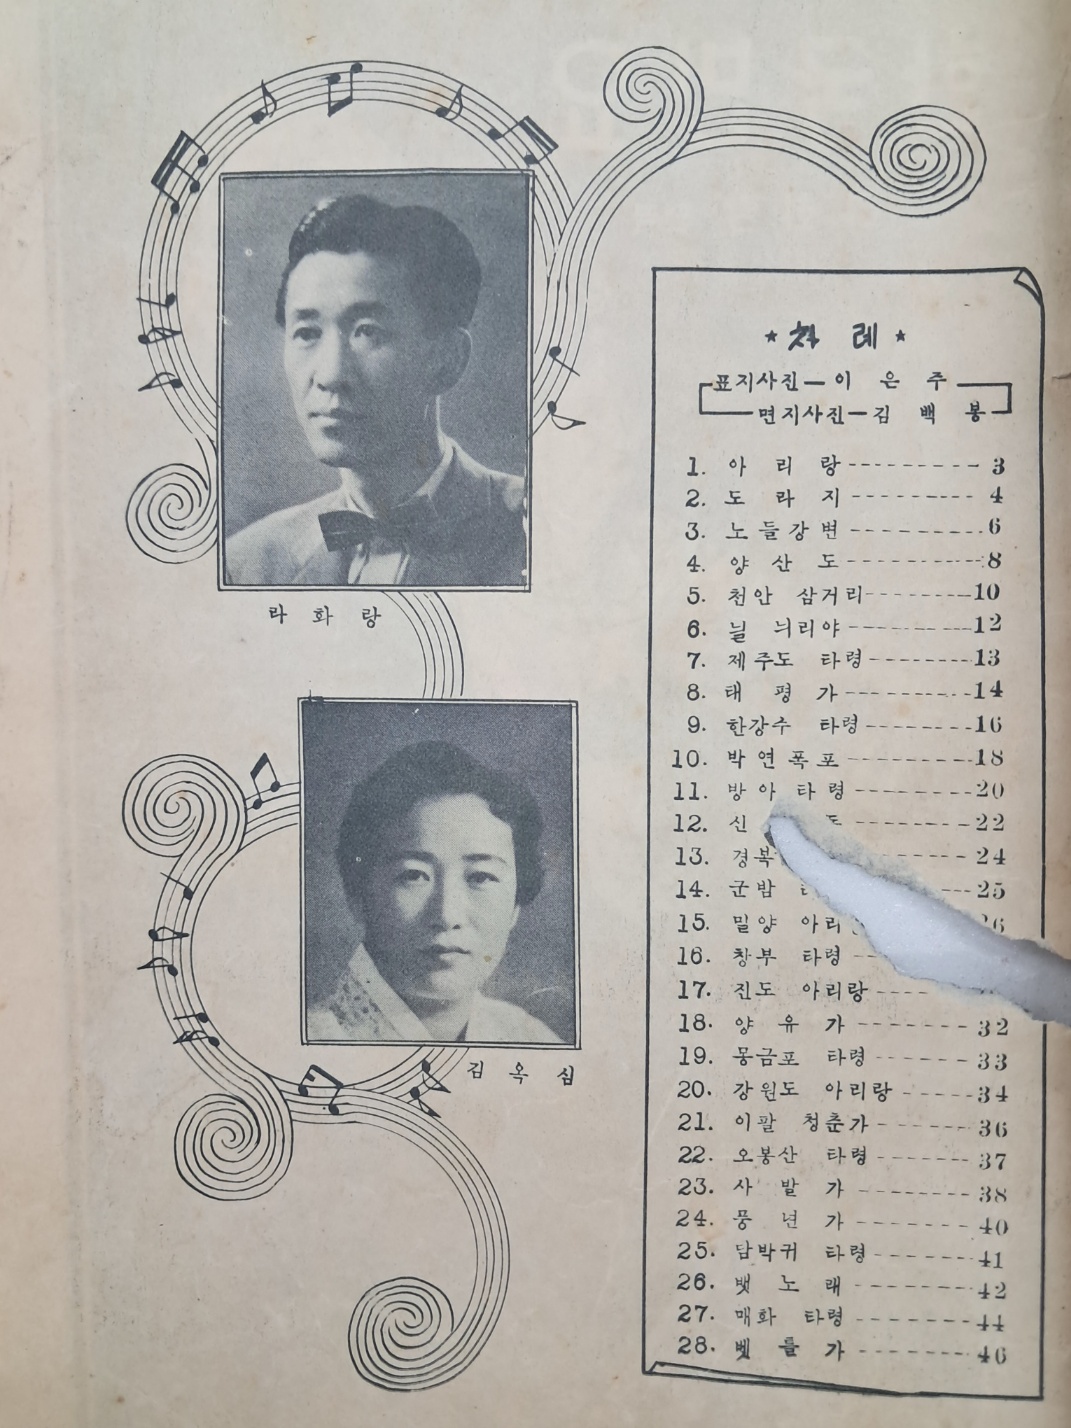 라 화 랑
김 옥 심
★ 차 례 ★
표지사진―이 은 주
면지사진―김 백 봉
1. 아 리 랑 3
2. 도 라 지 4
3. 노들강변 6
4. 양 산 도 8
5. 천안 삼거리 10
6. 늴 늬리야 12
7. 제주도 타령 13
8. 태 평 가 14
9. 한강수 타령 16
10. 박연폭포 18
11. 방아 타령 20
12. 신 22
13. 24
14. 군밤 25
15. 밀양
16. 창부 타령
17. 진도 아리랑
18. 양 유 가 32
19. 몽금포 타령 33
20. 강원도 아리랑 34
21. 이팔 청춘가 36
22. 오봉산 타령 37
23. 사 발 가 38
24. 풍 년 가 40
25. 담박귀 타령 41
26. 뱃 노 래 42
27. 매화 타령 44
28. 벳 틀 가 46